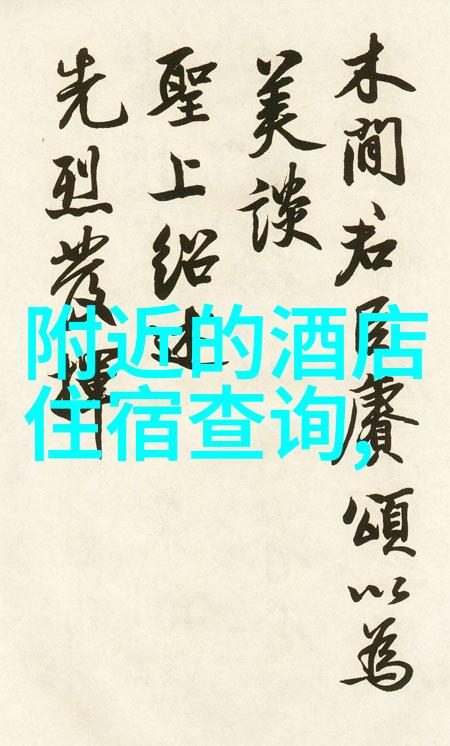 木間君臣賡頌以為
美談
聖上紹述
先烈發揮
附近的酒店
住宿查询,